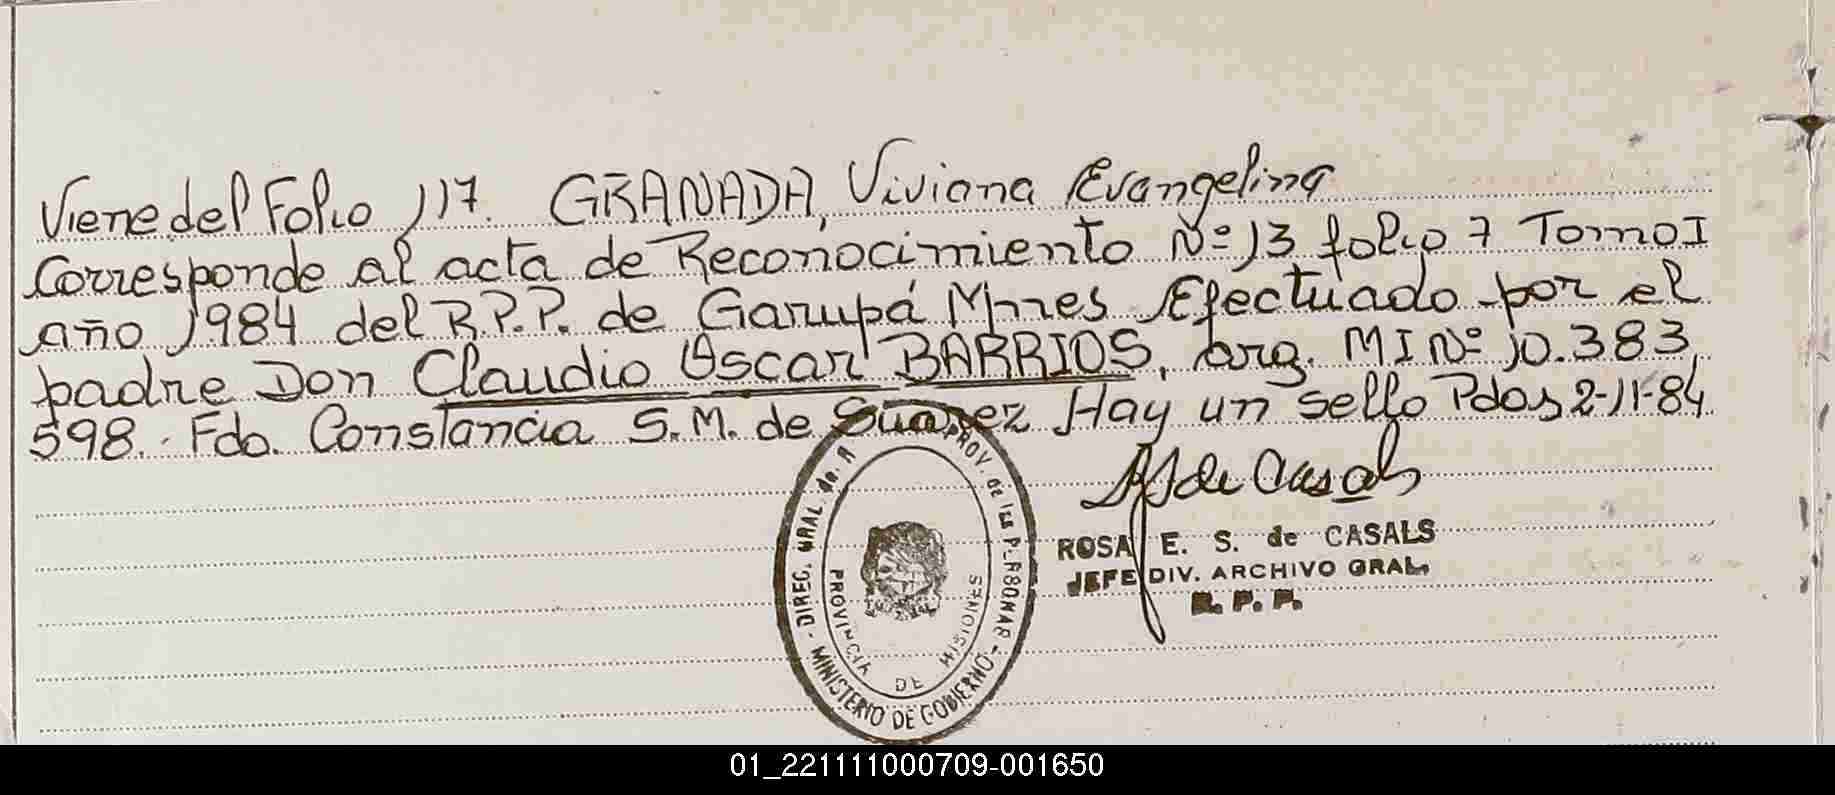 Viene del Folio 117. GRANADA, Viviana Evangelina
Corresponde al acta de Reconocimiento Nº 13 folio 7 Tomo I
año 1984 del R.P.P. de Garupá Mnes Efectuado por el
padre Don Claudio Oscar BARRIOS, arg. MI Nº 10.383.
598. Fdo. Constancia S.M. de Suarez Hay un sello Pdas 2-11-84
RS de Casals
ROSA E. S. de CASALS
JEFE DIV. ARCHIVO GRAL.
R. P. P.
DIREC. GRAL. de. R PROV. de las P.
MINISTERIO DE GOBIERNO
PROVINCIA DE MISIONES
01_221111000709-001650